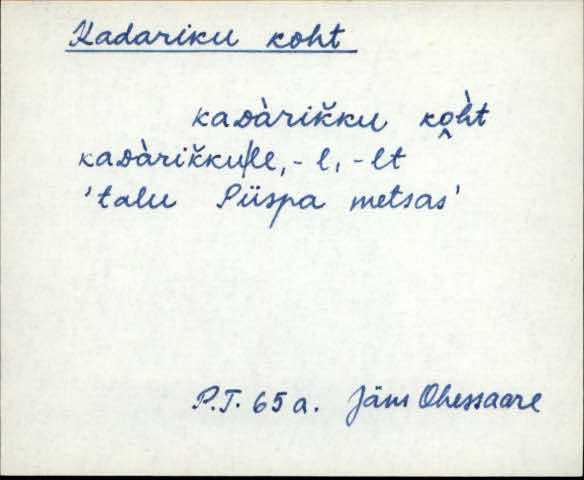 Kadariku koht
kaᴅàrik̆ku ko̭h̀t
kaᴅàrik̆ku/le, -l, -lt
'talu Piispa metsas'
P.T. 65 a. Jäm Ohessaare